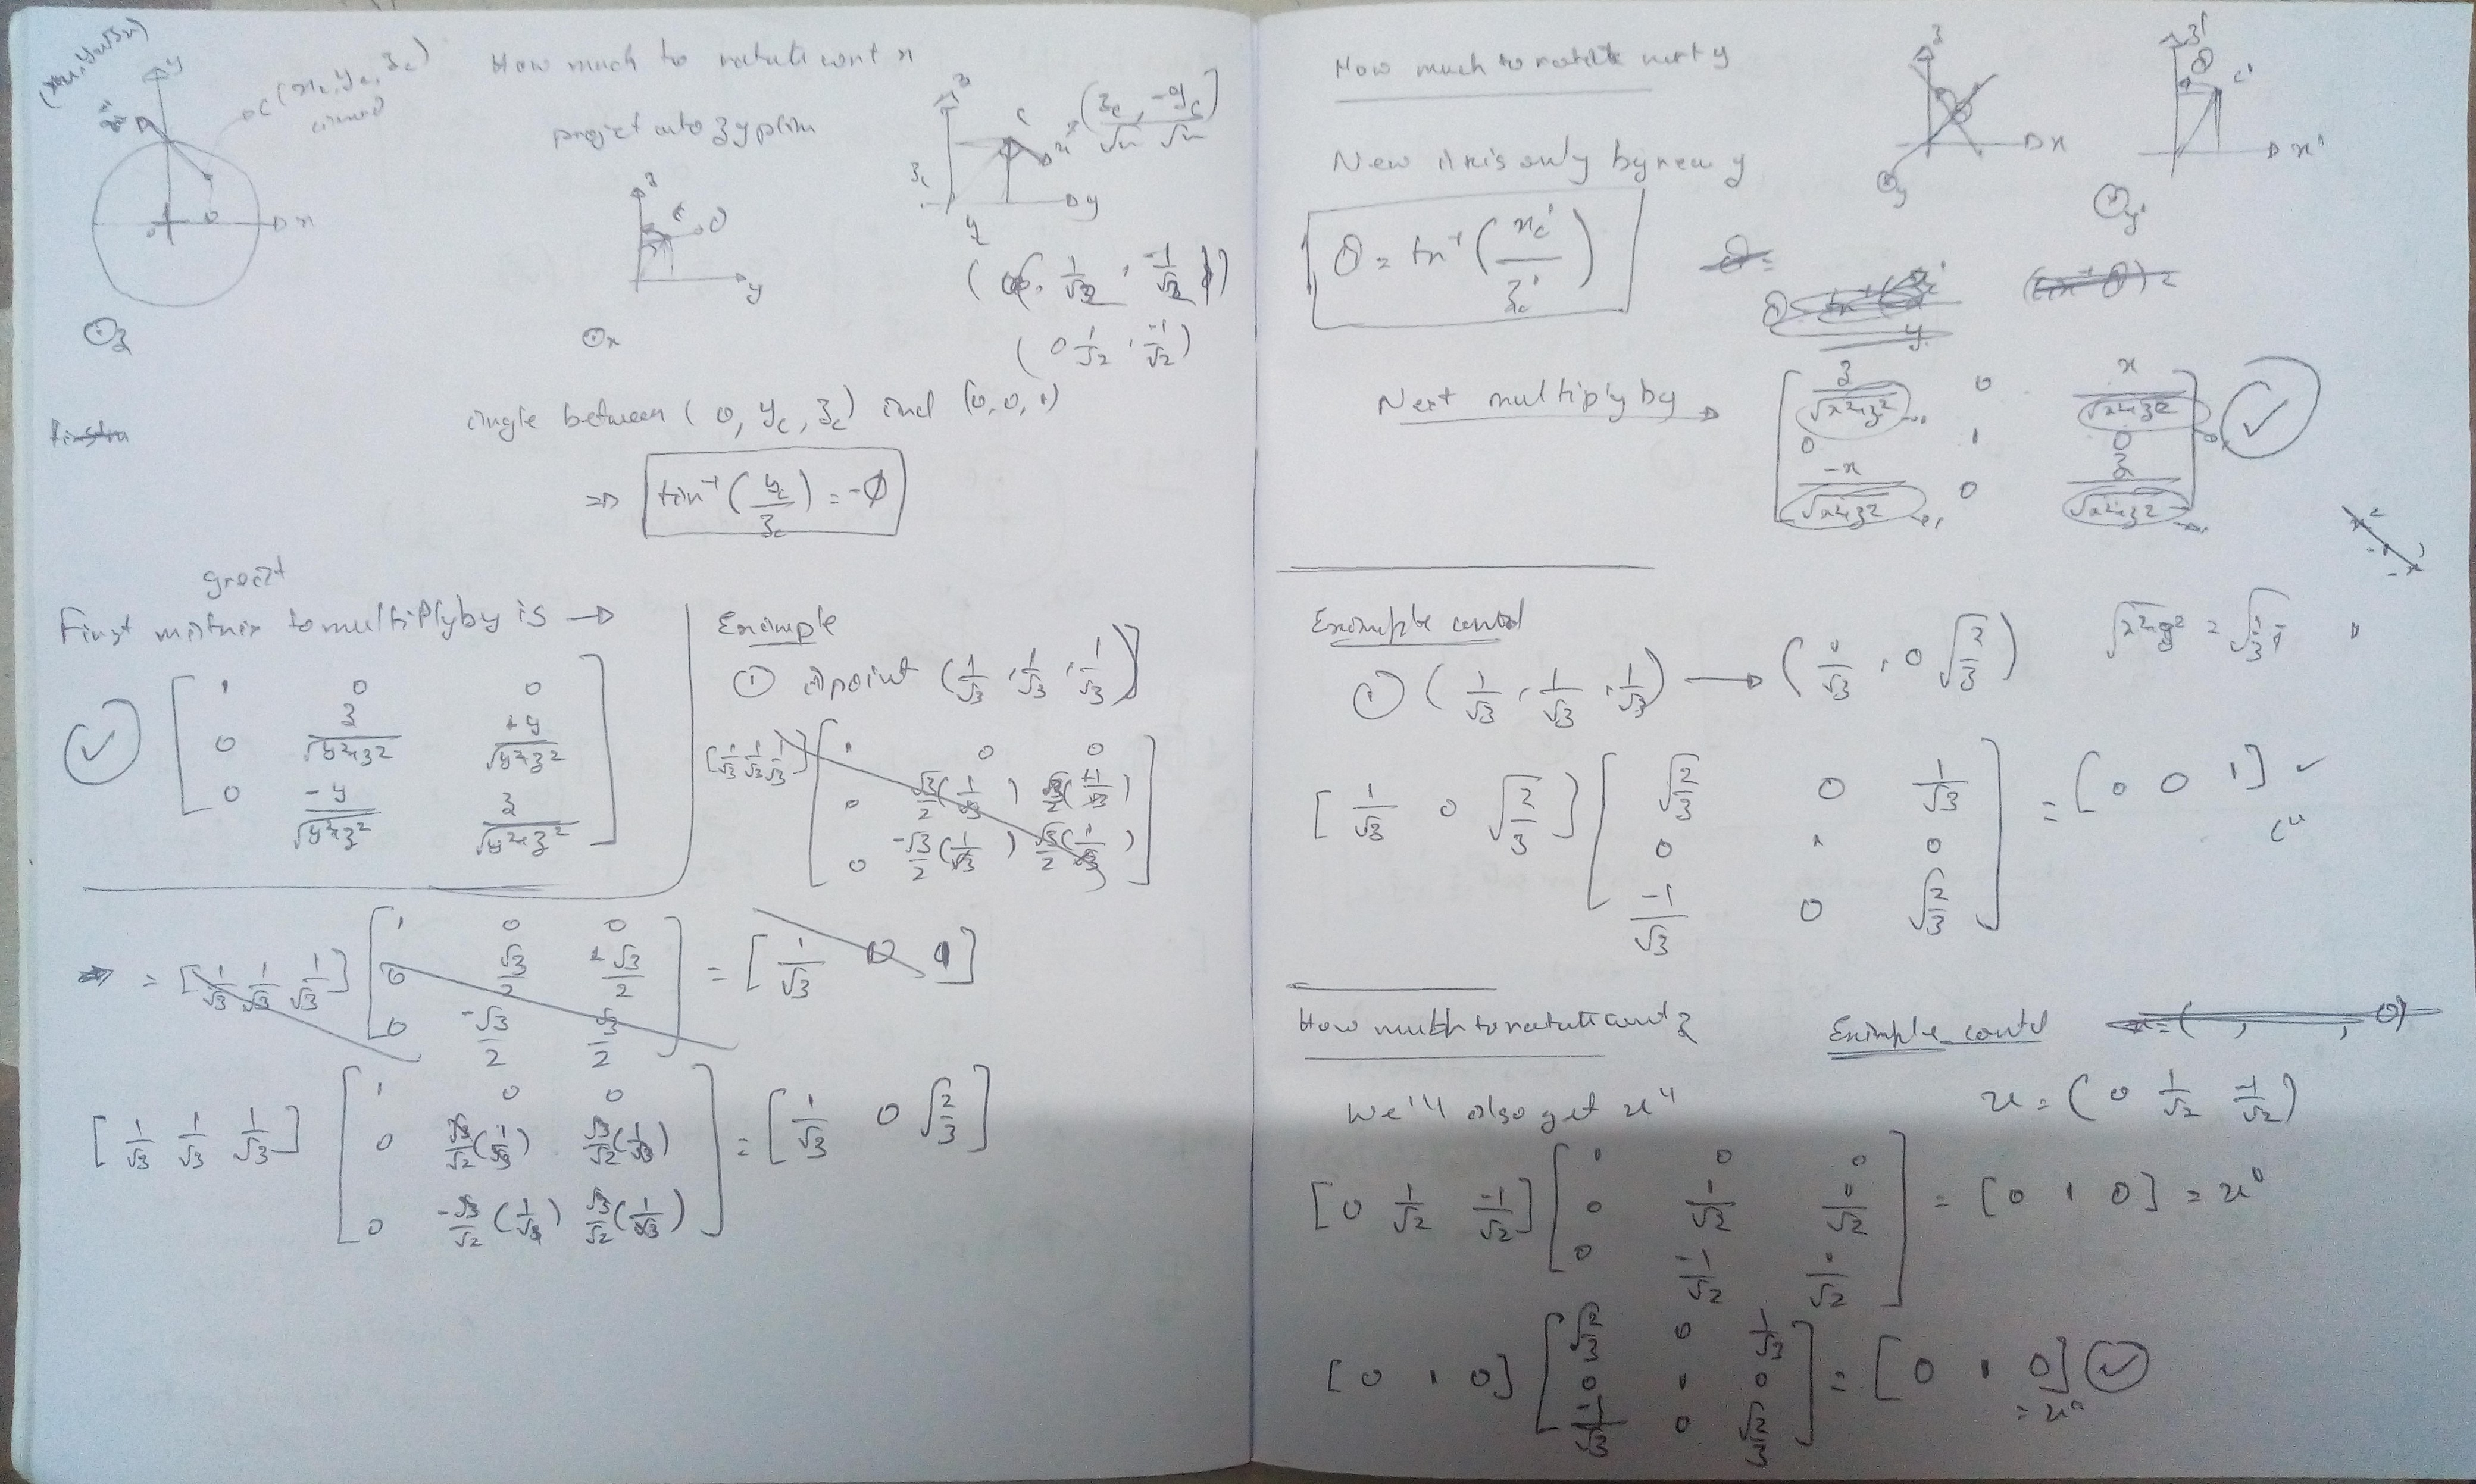 How much to rotate wrt x
(x_c, y_c, z_c)
project onto zy plane
angle between (0, y_c, z_c) and (0, 0, 1)
=> tan⁻¹ (y_c / z_c) = -Ø
great
First matrix to multiply by is →
[ 1 0 0
0 z/√(y²+z²) +y/√(y²+z²)
0 -y/√(y²+z²) z/√(y²+z²) ]
Example
① A point (1/√3, 1/√3, 1/√3)
[1/√3 1/√3 1/√3] [ 1 0 0
0 √3/2 (1/√3) √3/2 (1/√3)
0 -√3/2 (1/√3) √3/2 (1/√3) ]
= [1/√3 1/√3 1/√3] [ 1 0 0
0 √3/2 +√3/2
0 -√3/2 √3/2 ] = [1/√3 0 1]
[1/√3 1/√3 1/√3] [ 1 0 0
0 √3/√2 (1/√3) √3/√2 (1/√3)
0 -√3/√2 (1/√3) √3/√2 (1/√3) ] = [1/√3 0 √(2/3)]
(0 1/√2, -1/√2)
How much to rotate wrt y
New axis only by new y
θ = tan⁻¹ (x_c' / z_c')
Next multiply by →
[ z/√(x²+z²) 0 x/√(x²+z²)
0 1 0
-x/√(x²+z²) 0 z/√(x²+z²) ]
Example contd
① (1/√3, 1/√3, 1/√3) → (1/√3, 0 √(2/3))
[1/√3 0 √(2/3)] [ √(2/3) 0 1/√3
0 1 0
-1/√3 0 √(2/3) ] = [0 0 1] ✓
c"
How much to rotate wrt z
Example contd
We'll also get u"
u = (0 1/√2 -1/√2)
[0 1/√2 -1/√2] [ 1 0 0
0 1/√2 1/√2
0 -1/√2 1/√2 ] = [0 1 0] = u'
[0 1 0] [ √(2/3) 0 1/√3
0 1 0
-1/√3 0 √(2/3) ] = [0 1 0] ✓
= u"